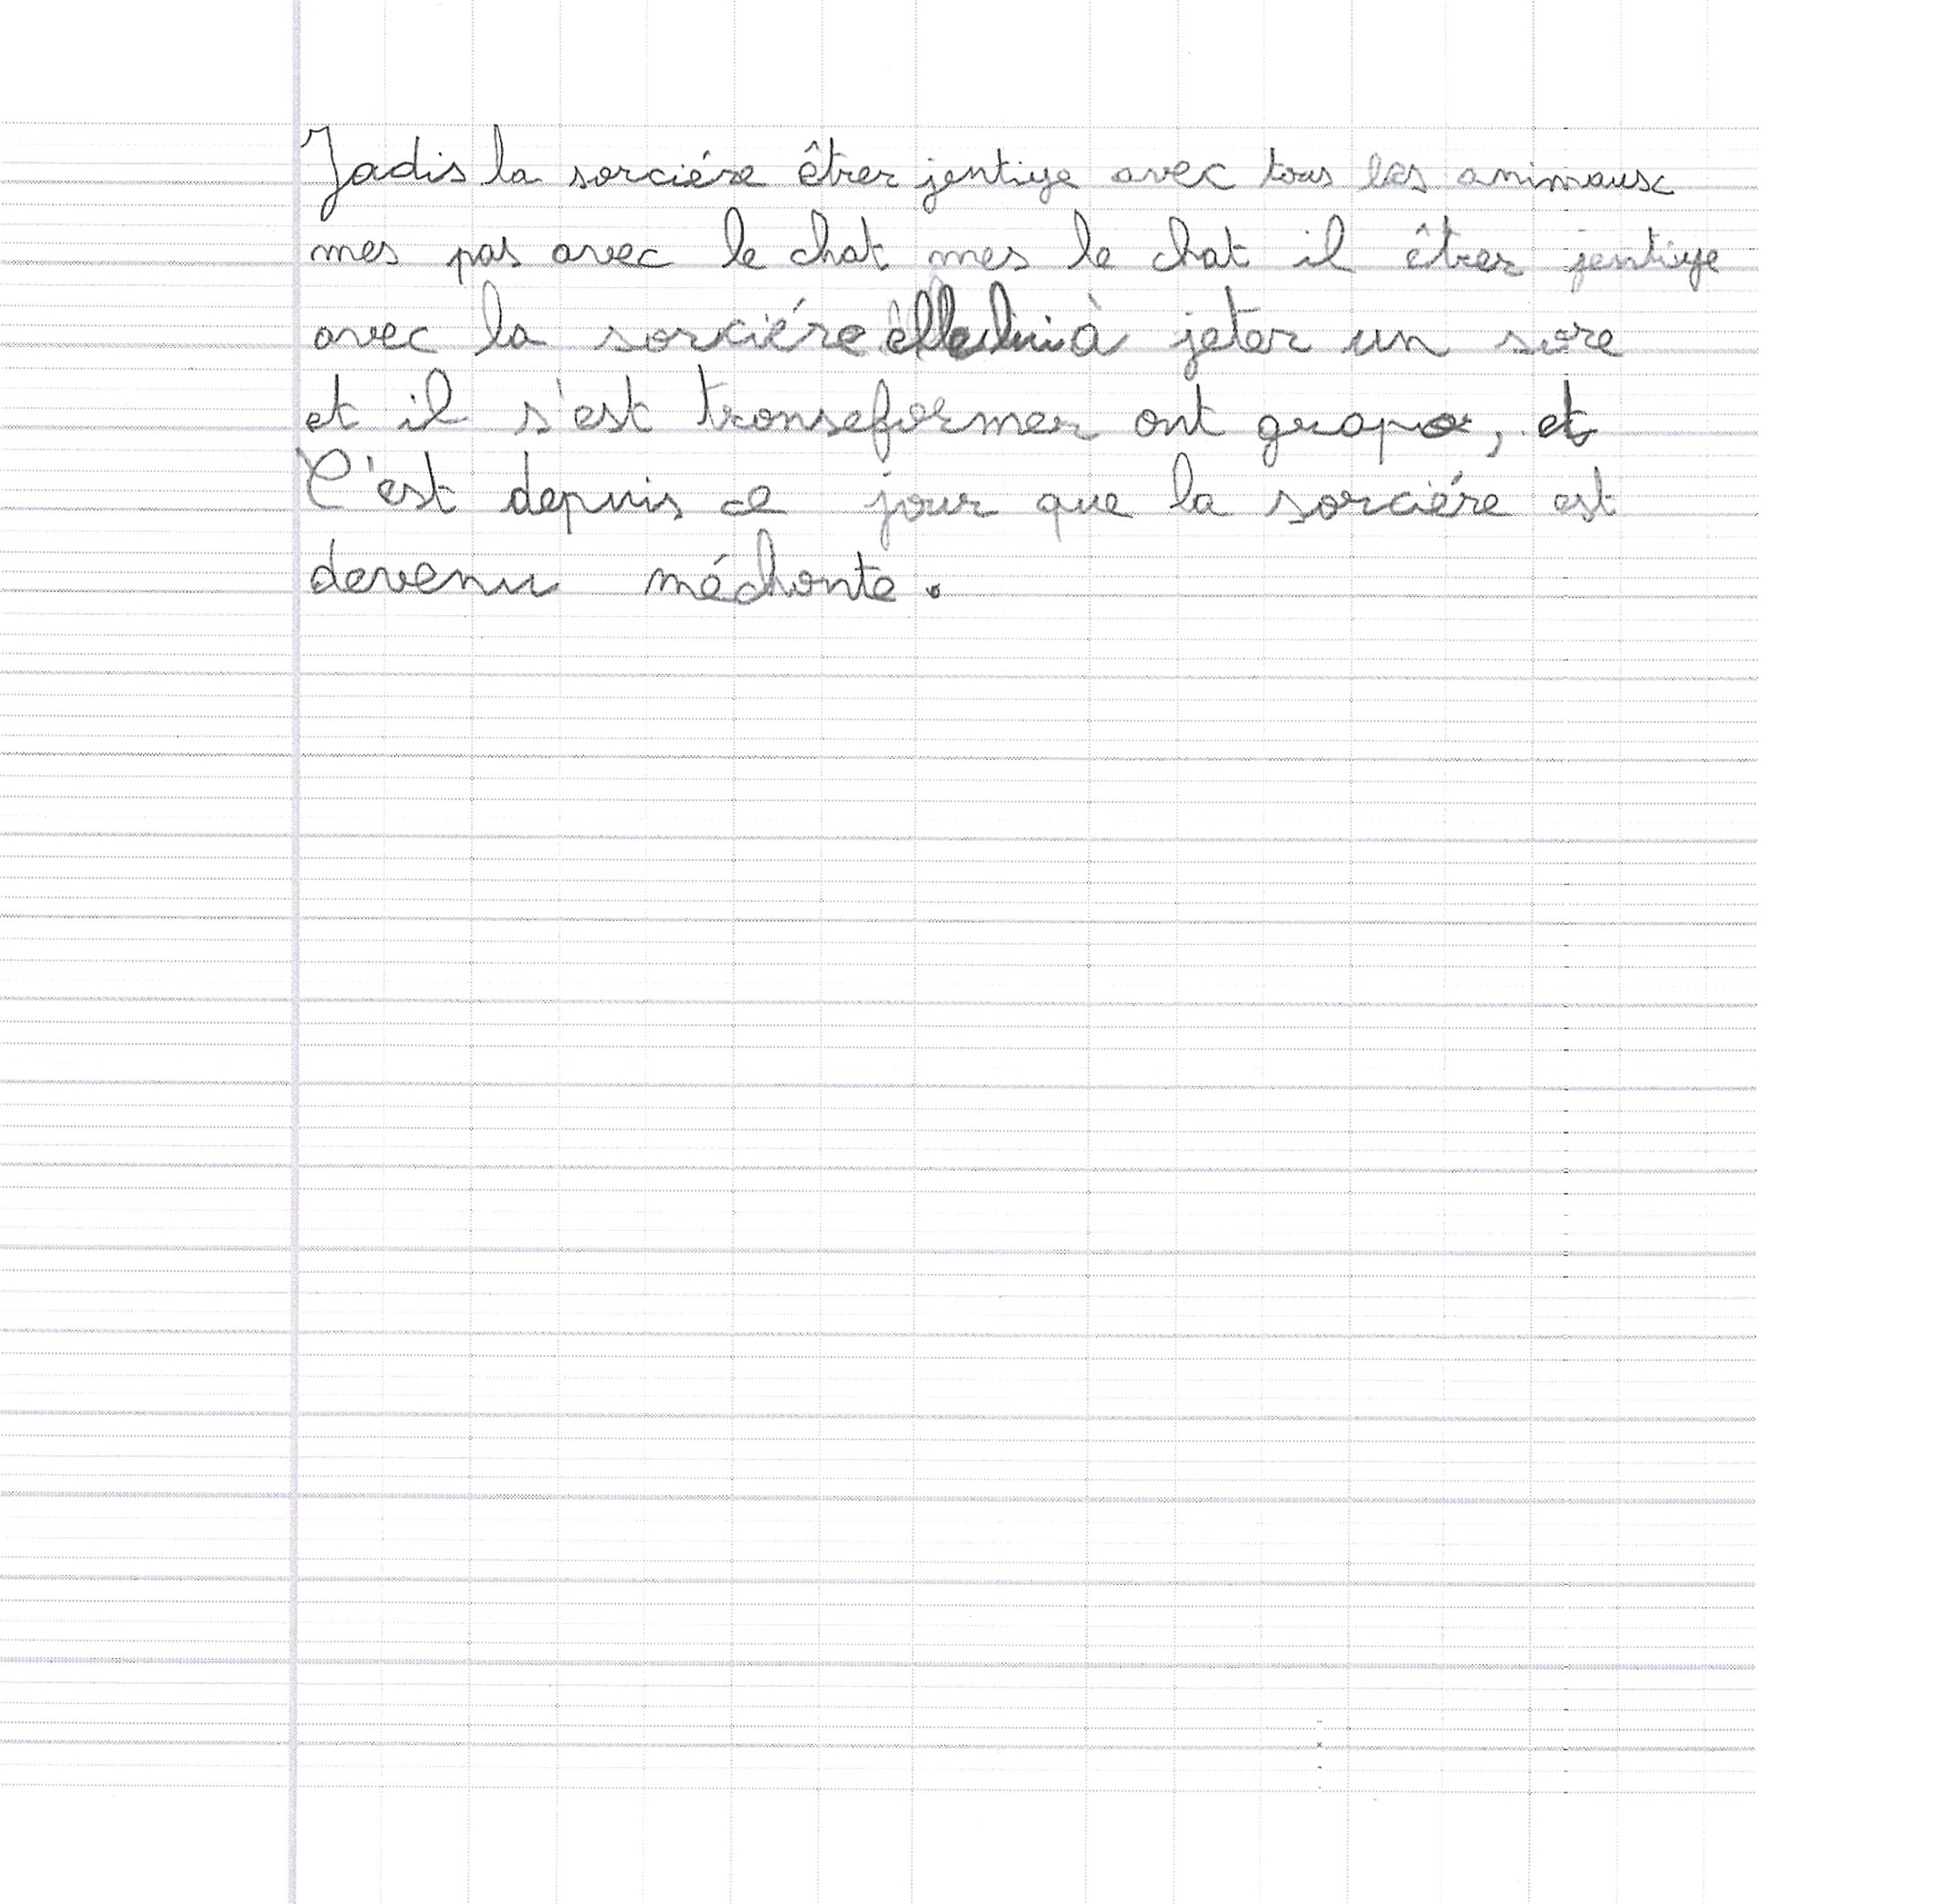 Jadis la sorciére êtrer jentiye avec tous les animaux
mes pas avec le chat mes le chat il êtrer jentiye
avec la sorciére elle lui à jeter un sore
et il s'est transeformer ont grapo, et
C'est depuis ce jour que la sorciére est
devenu méchante.